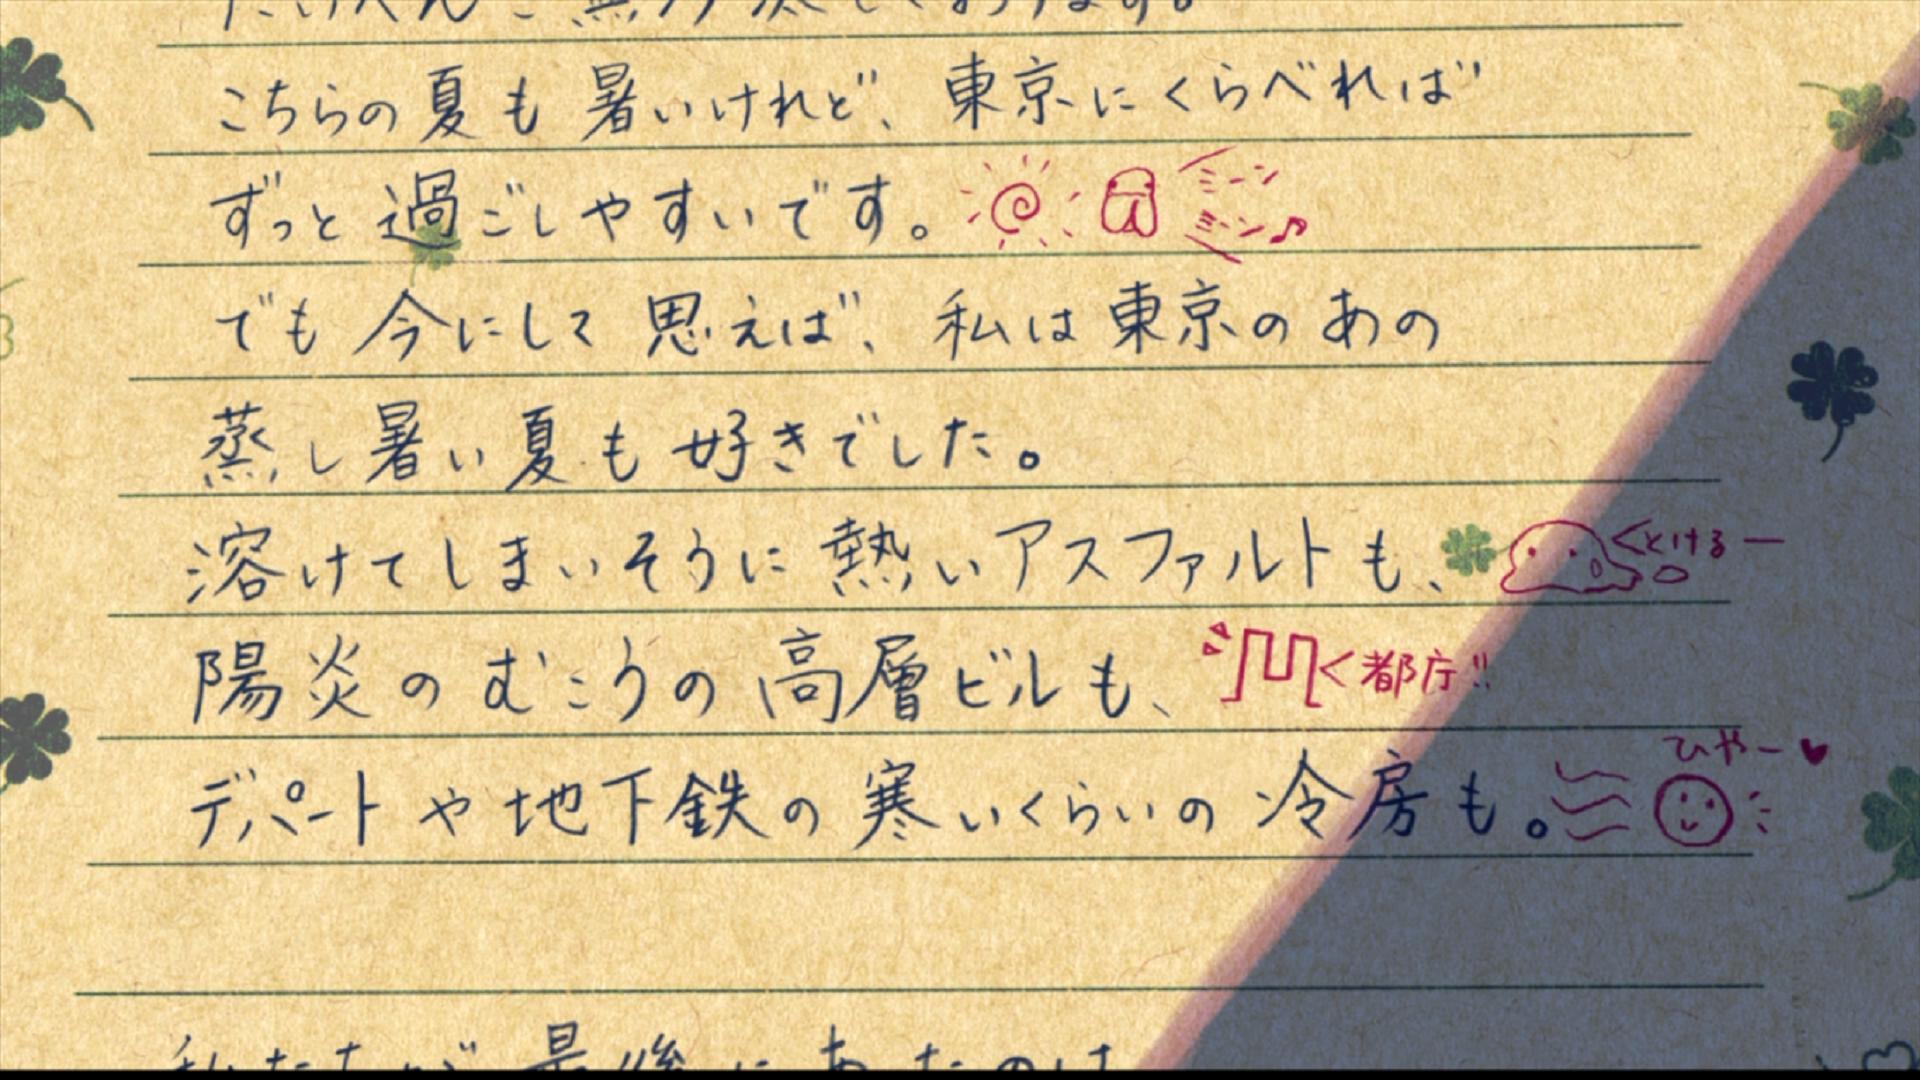 こちらの夏も暑いけれど、東京にくらべれば
ずっと過ごしやすいです。 ミーン ミーン♪
でも今にして思えば、私は東京のあの
蒸し暑い夏も好きでした。
溶けてしまいそうに熱いアスファルトも、 <とけるー
陽炎のむこうの高層ビルも、 <都庁!!
デパートや地下鉄の寒いくらいの冷房も。 ひやー♥
私たちが最後にあったのは